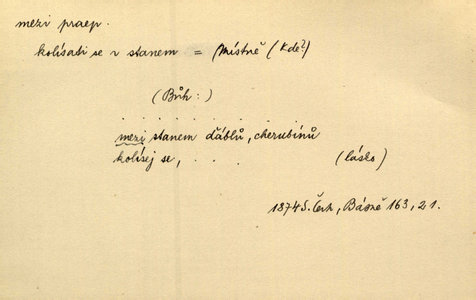 mezi praep.
kolísati se v stanem = Místně (Kde?)
(Bůh:)
. . . . . . . . . . . .
mezi stanem ďáblů, cherubínů
kolísej se, . . . (lásko)
1874 S. Čech, Básně 163, 21.